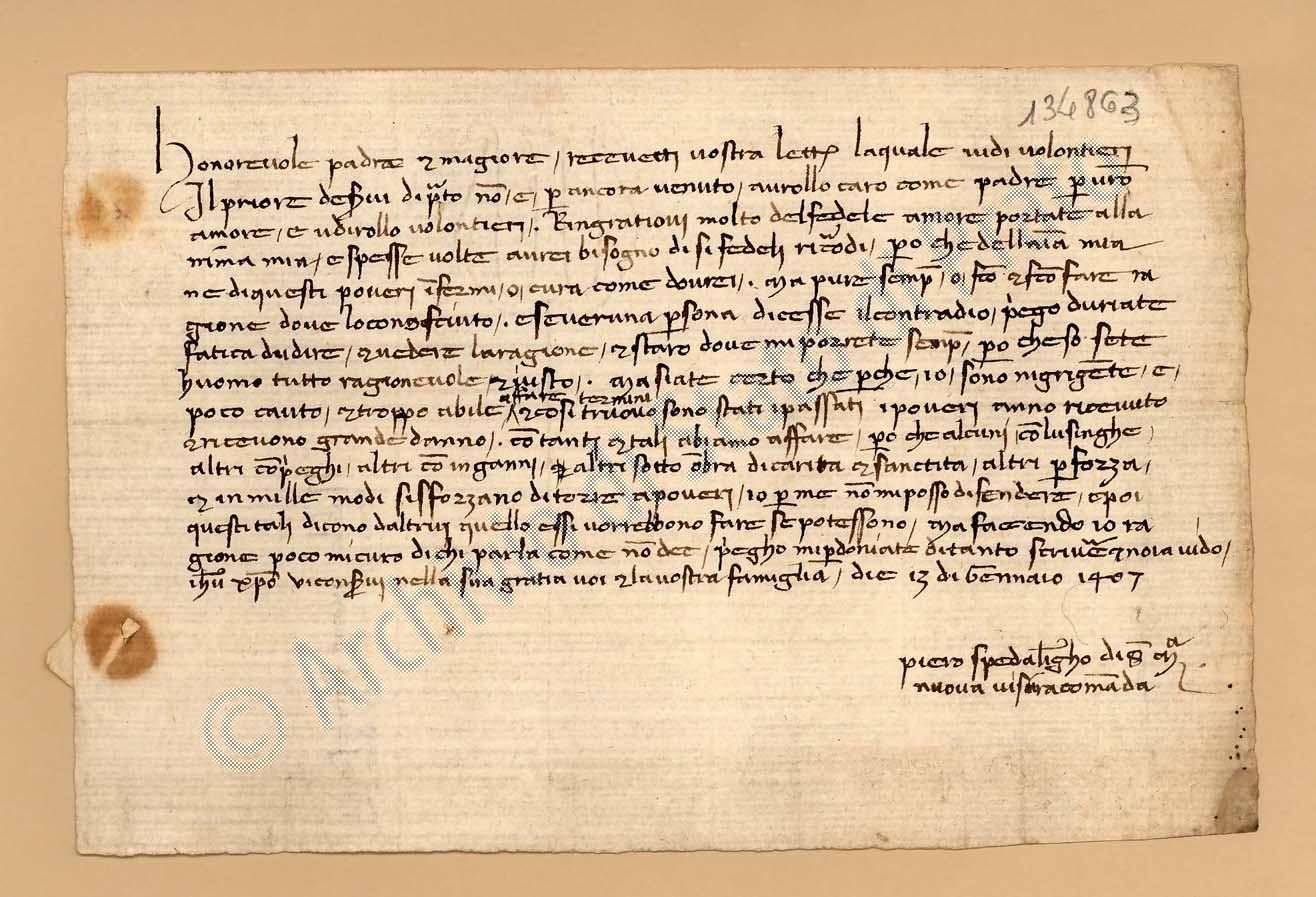 134863
honorevole padre & magiore / recevetti vostra lettr̄ laquale vidi volontieri
Il priore de di p̄to nō / e / p̱ ancora venuto / avrollo caro come padre p̱ vrō
amore / e udirollo volontieri /. Ringratiovi molto del fedele amore portate alla
nima mia / e spesse volte avrei bisogno di si fedeli ricordi / po che dellaīa mia
ne di questi poveri īfermi / o / cura come dovrei /. Ma pure semp̄ / o / fc̄o & fc̄o fare ra
gione dove lo conosciuto /. e se veruna p̱sona dicesse il contradio / p̄ego duriate
fatica dudire / & vedere la ragione / & staro dove mi porrete semp̄ / po che so sete
huomo tutto ragionevole & iusto /. Ma siate certo che p̱che / io / sono nigrigēte / e /
poco cauto / & troppo abile & cosi truovo sono stati i passati i poveri anno ricevuto
affare termini
& ricevono grande danno /. cō tanti & tali abiamo affare / po che alcuni / cō lusinghe /
altri cō p̄eghi / altri cō inganni / & altri sotto ōbra di carita & sanctita / altri p̱ forza /
& in mille modi si sforzano di torre a poveri / io p̱ me nō mi posso difendere / e poi
questi tali dicono daltrui quello essi vorrebbono fare se potessono / Ma facendo io ra
gione poco mi curo di chi parla come nō dee / p̄egho mi p̱doniate di tanto scriv̄e & noia vi do /
ihū xp̄o vi conservi nella sua gratia voi & la vostra famiglia / die 13 di Gennaio 1407
piero spedalīgho di S Mᵃ
nuova vi si racomāda
© Archivio di Stato di Prato